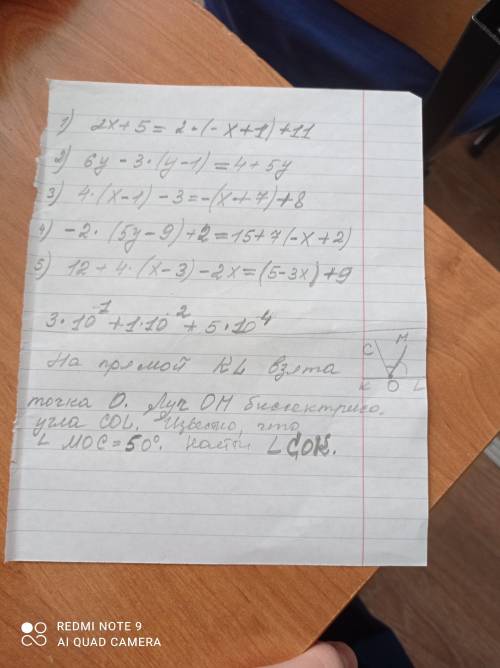 1) 2x+5=2·(-x+1)+11
2) 6y-3·(y-1)=4+5y
3) 4·(x-1)-3=-(x+7)+8
4) -2·(5y-9)+2=15+7(-x+2)
5) 12+4·(x-3)-2x=(5-3x)+9
3·10⁻¹+1·10⁻²+5·10⁴
На прямой KL взята
C M
K O L
точка O. Луч OM биссектриса.
угла COL. Известно, что
∠ MOC=50°. Найти ∠COK.
REDMI NOTE 9
AI QUAD CAMERA